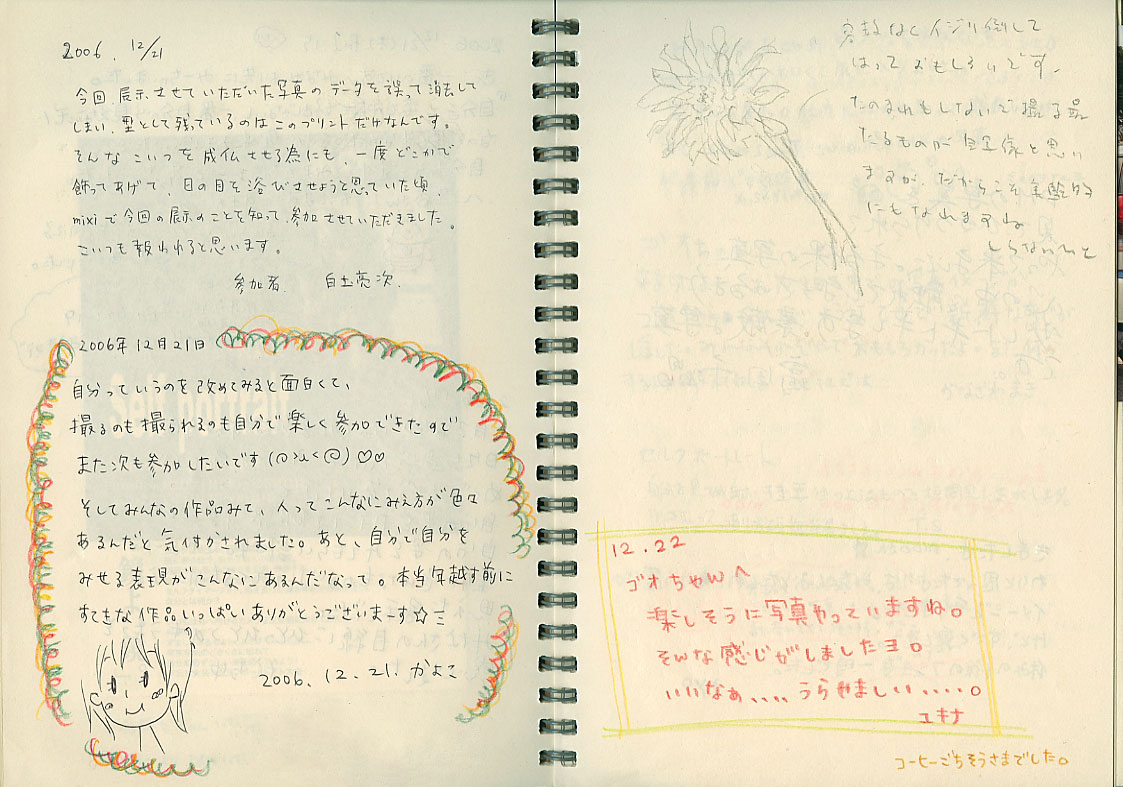 2006. 12/21
今回展示させていただいた写真のデータを誤って消去して
しまい、型として残っているのはこのプリントだけなんです。
そんなこいつを成仏させる為にも、一度どこかで
飾ってあげて、日の目を浴びさせようと思っていた頃、
mixiで今回の展示のことを知って、参加させていただきました。
こいつも報われると思います。
参加者.
2006年12月21日
自分っていうのを改めてみると面白くて、
撮るのも撮られるのも自分で楽しく参加できたので
また次も参加したいです ♡♡
そしてみんなの作品みて、人ってこんなにみえ方が色々
あるんだと気付かされました。あと、自分で自分を
みせる表現がこんなにあるんだなって。本当年越す前に
すてきな作品いっぱいありがとうございまーす☆
2006. 12. 21. かよこ
容赦なくイジり倒して
はって おもしろいです。
たのまれもしないで撮る最
たるものが自写像と思い
ますが、だからこそ実験的
にもなれますね
しらないひと
12.22
ゴオちゃんへ
楽しそうに写真やっていますね。
そんな感じがしましたヨ。
いいなぁ、、、、うらやましい・・・・。
ユキナ
コーヒーごちそうさまでした。